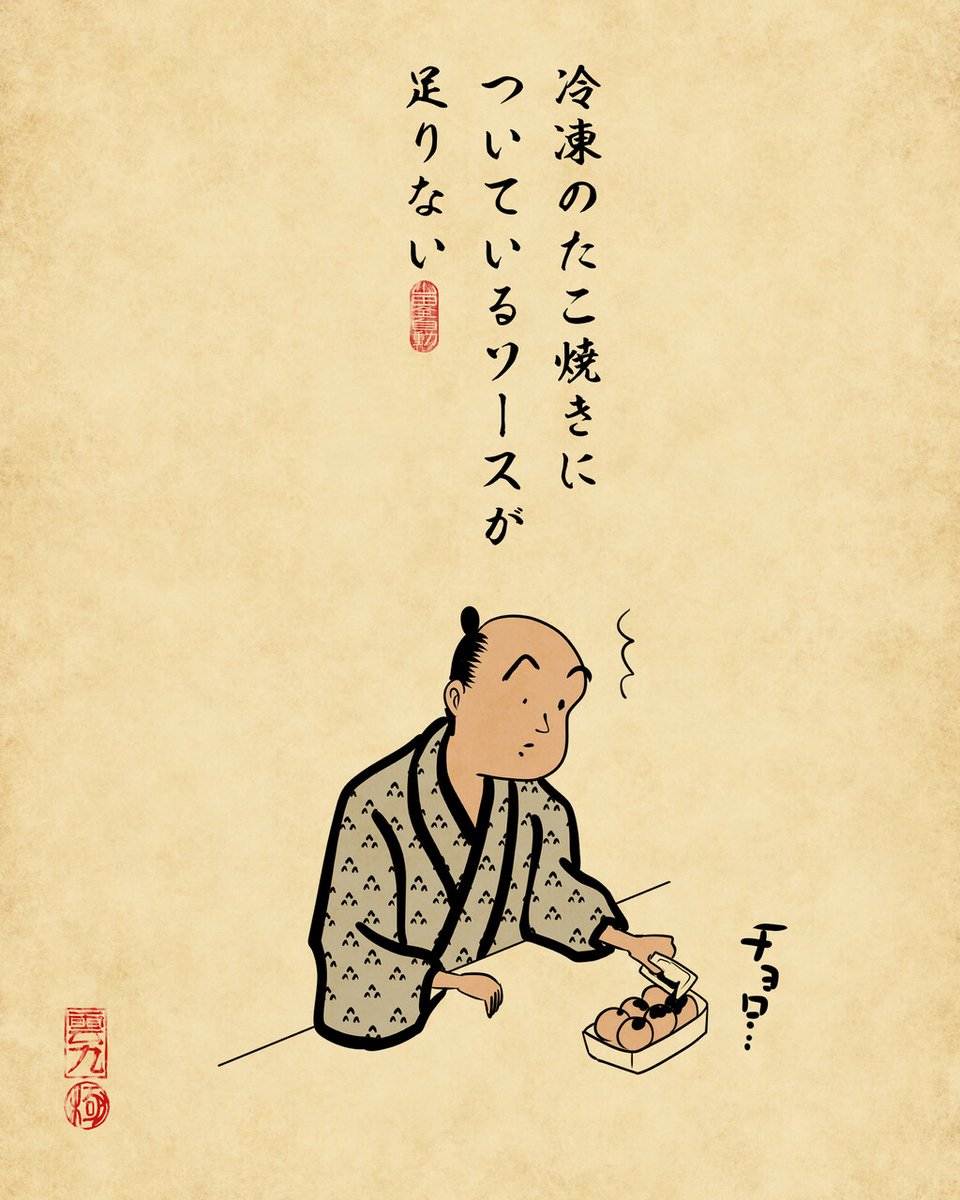 冷凍のたこ焼きに
ついているソースが
足りない
チョロ…